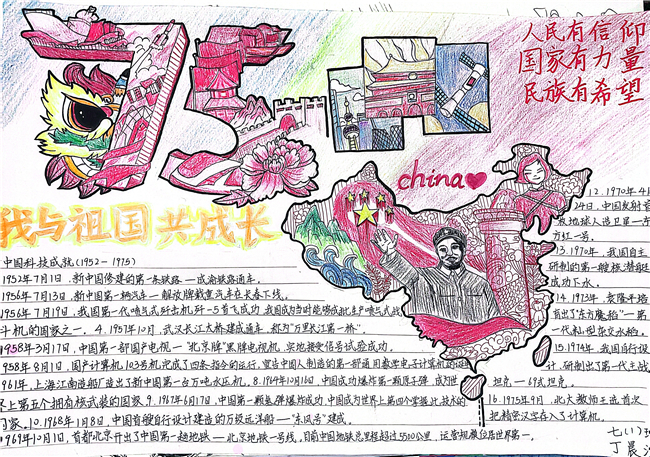 75
人民有信仰
国家有力量
民族有希望
china
我与祖国共成长
中国科技成就(1952-1975)
1952年7月1日,新中国修建的第一条铁路——成渝铁路通车。
1956年7月13日,新中国第一辆汽车——解放牌载重汽车在长春下线。
1956年7月19日,我国第一代喷气式歼击机歼-5首飞成功.我国成为当时能够成批生产喷气式战
斗机的国家之一. 4.1957年10月.武汉长江大桥建成通车.称为"万里长江第一桥".
1958年3月17日,中国第一部国产电视—"北京牌"黑牌电视机 实地接受信号试验成功.
1958年8月1日,国产计算机103号机完成了四条指令的运行,宣告中国人制造的第一部通用数字电子计算机的
1961年,上海江南造船厂造出了新中国第一台万吨水压机.8.1964年10月16日,中国成功爆炸第一颗原子弹,成为世
界上第五个拥有核武装的国家 9.1967年6月17日,中国第一颗氢弹爆炸成功.中国成为世界上第四个掌握此技术的
国家. 10.1968年1月8日,中国首艘自行设计建造的万级远洋船—"东风号"建成.
1969年10月1日,首都北京开出了中国第一趟地铁—北京地铁一号线.目前中国地铁总里程超过5500公里,运营规模位居世界第一.
12.1970年4月
24日.中国发射首
颗地球人造卫星一东
方红一号.
13.1970年,我国自主
研制的第一艘核潜艇
成功下水.
14.1973年,袁隆平培
育出了"东方魔稻"一第
一代籼型杂交水稻.
15.1974年,我国自行设
计、研制出了第一代主战
坦克—69式坦克.
16.1975年9月,北大教师王选首次
把精密汉字存入了计算机.
七(1)班
丁晨